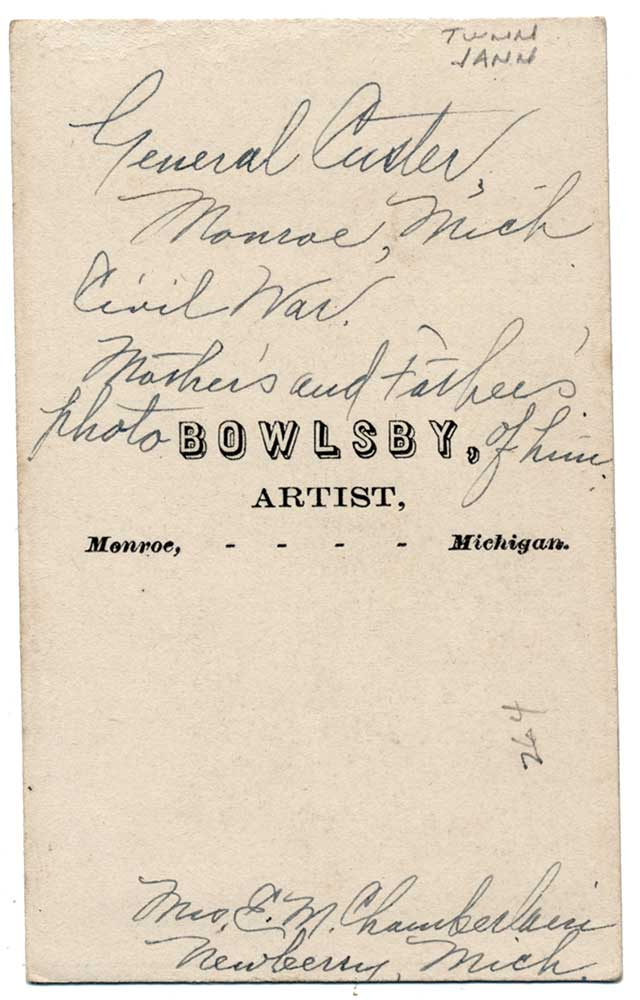 TWNN
JANN
General Custer,
Monroe, Mich
Civil War.
Mother's and Father's
photo of him.
BOWLSBY,
ARTIST,
Monroe, - - - - Michigan.
264
Mrs. E. M. Chamberlain
Newberry, Mich.